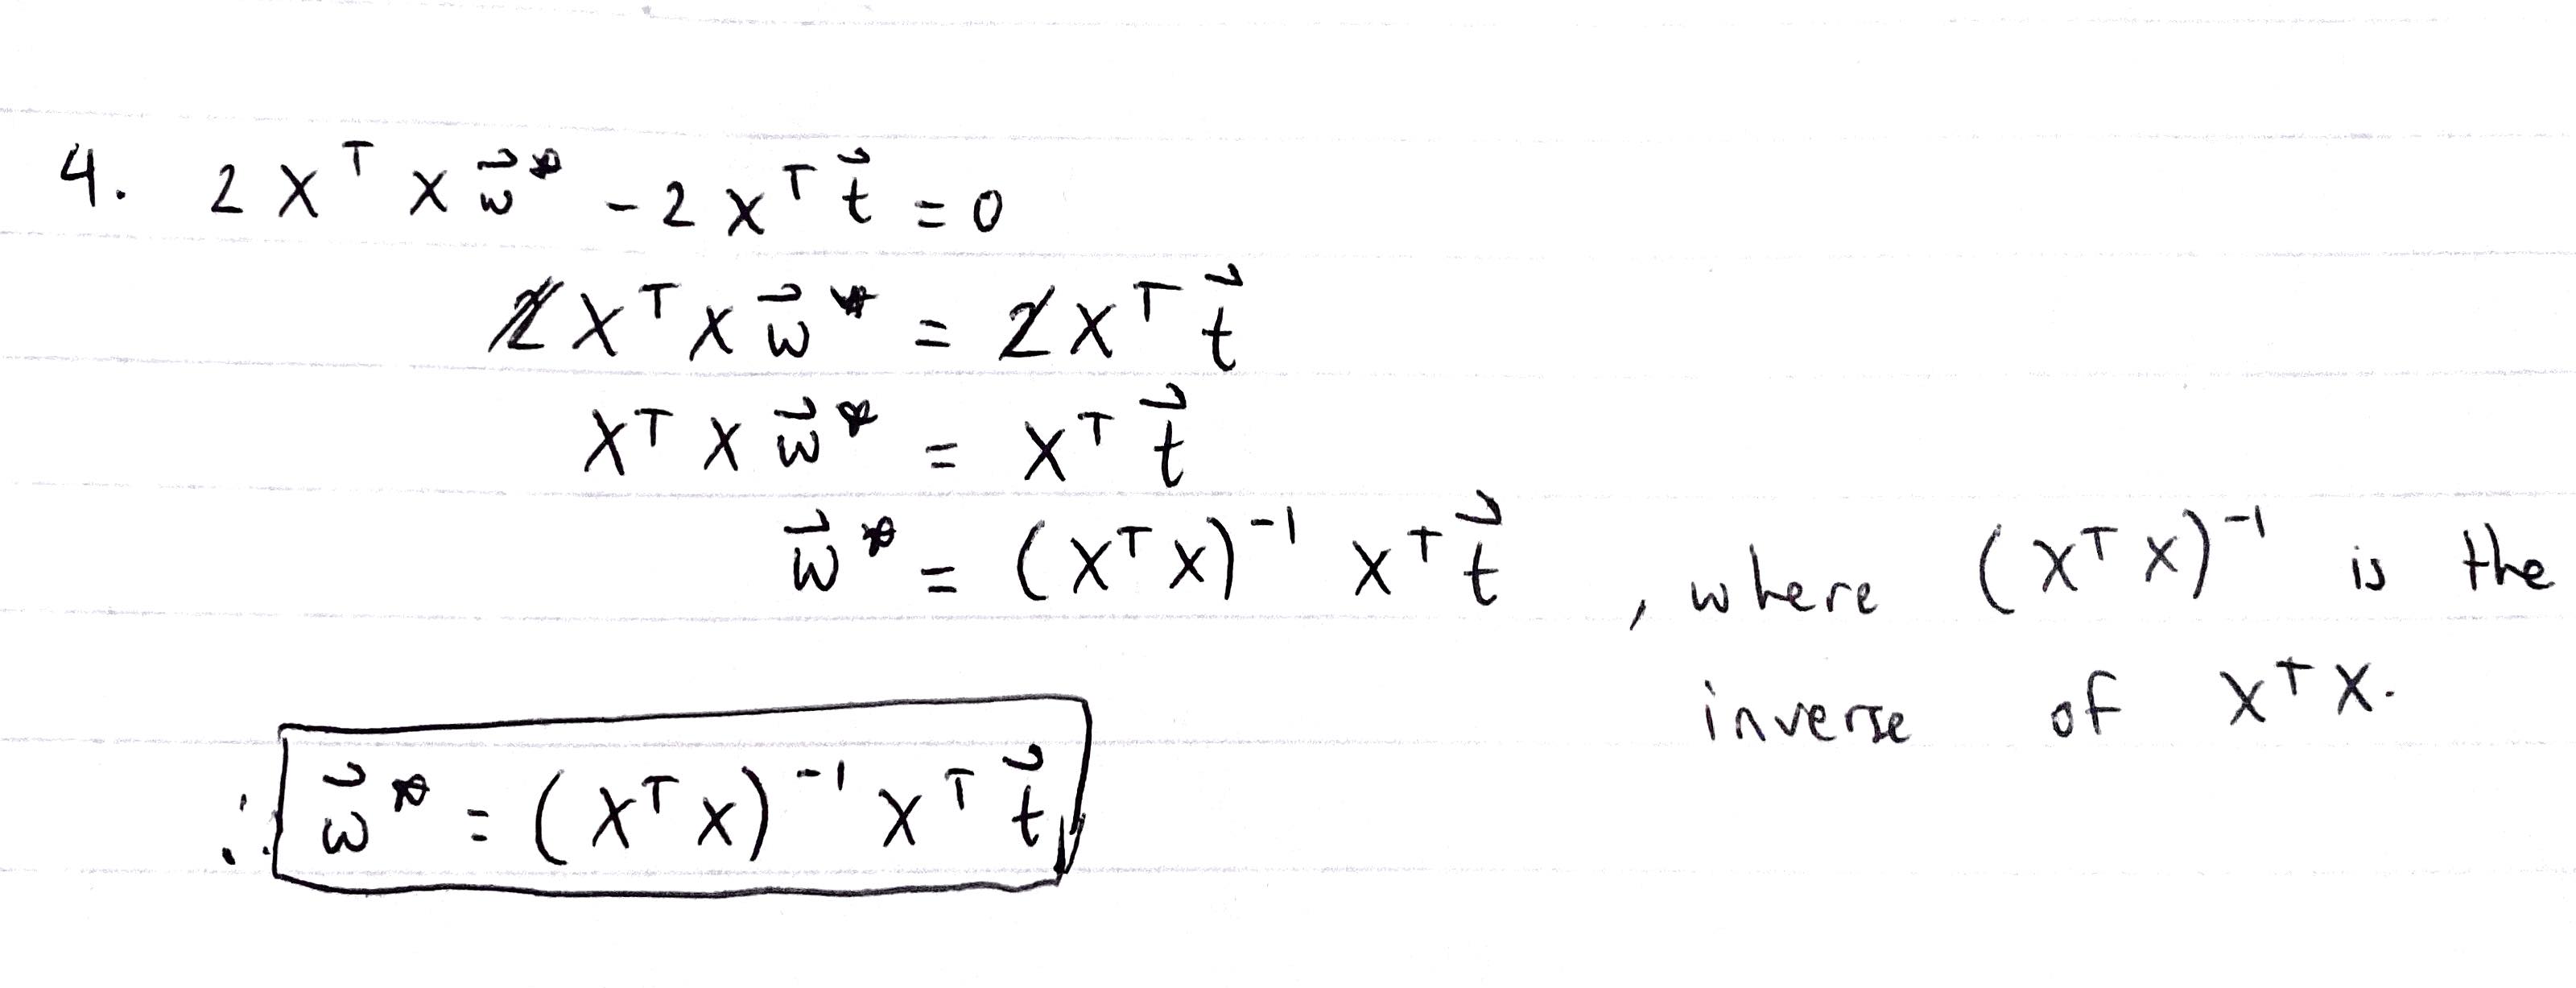 4. 2 X^T X w⃗* - 2 X^T t⃗ = 0
2 X^T X w⃗* = 2 X^T t⃗
X^T X w⃗* = X^T t⃗
w⃗* = (X^T X)^-1 X^T t⃗ , where (X^T X)^-1 is the
inverse of X^T X.
∴ w⃗* = (X^T X)^-1 X^T t⃗